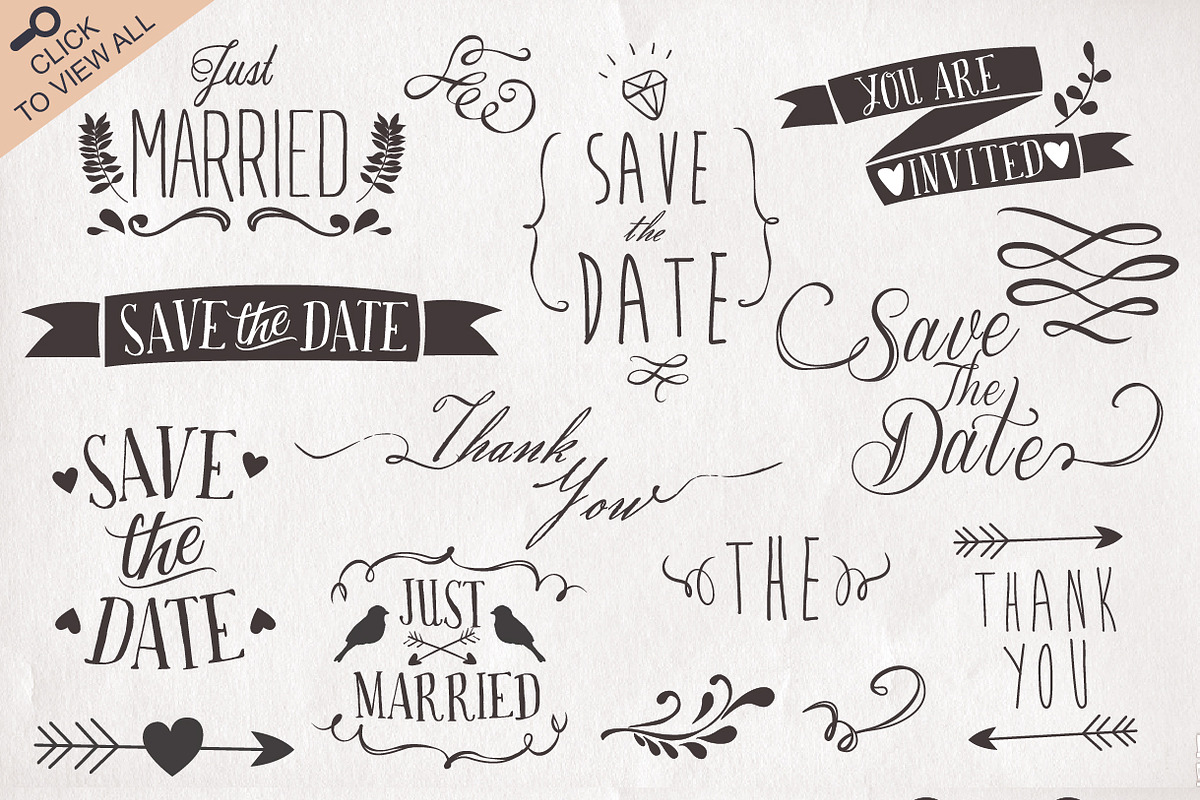 CLICK
TO VIEW ALL
Just
MARRIED
SAVE
the
DATE
YOU ARE
INVITED
SAVE the DATE
Save
The
Date
Thank
You
SAVE
the
DATE
JUST
MARRIED
THE
THANK
YOU